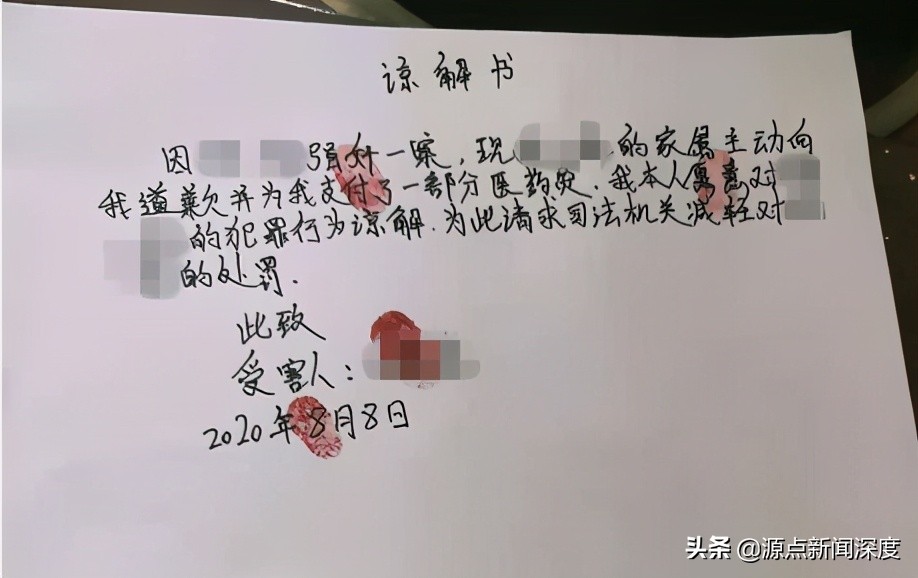 谅解书
因 强奸一案，现 的家属主动向
我道歉并为我支付了一部分医药费.我本人愿意对
的犯罪行为谅解.为此请求司法机关减轻对
的处罚.
此致
受害人：
2020年8月8日
头条 @源点新闻深度